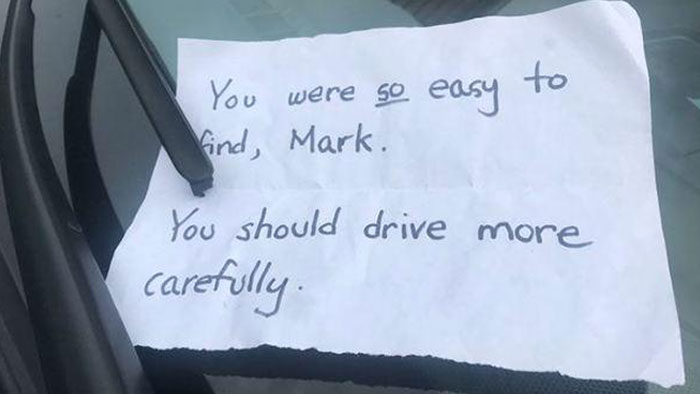 You were so easy to
find, Mark.
You should drive more
carefully.